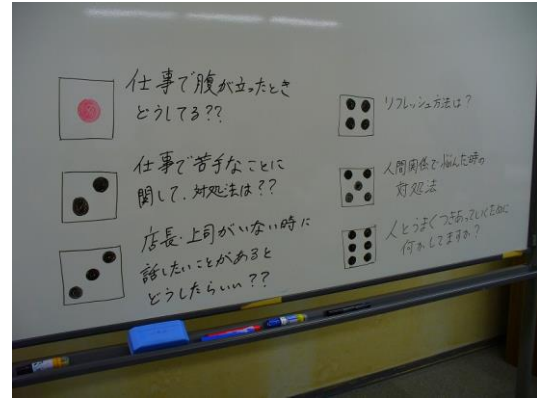 仕事で腹が立ったとき
どうしてる??
仕事で苦手なことに
関して、対処法は??
店長・上司がいない時に
話したいことがあると
どうしたらいい??
リフレッシュ方法は?
人間関係で悩んだ時の
対処法
人とうまくつきあっていくために
何かしてますか?